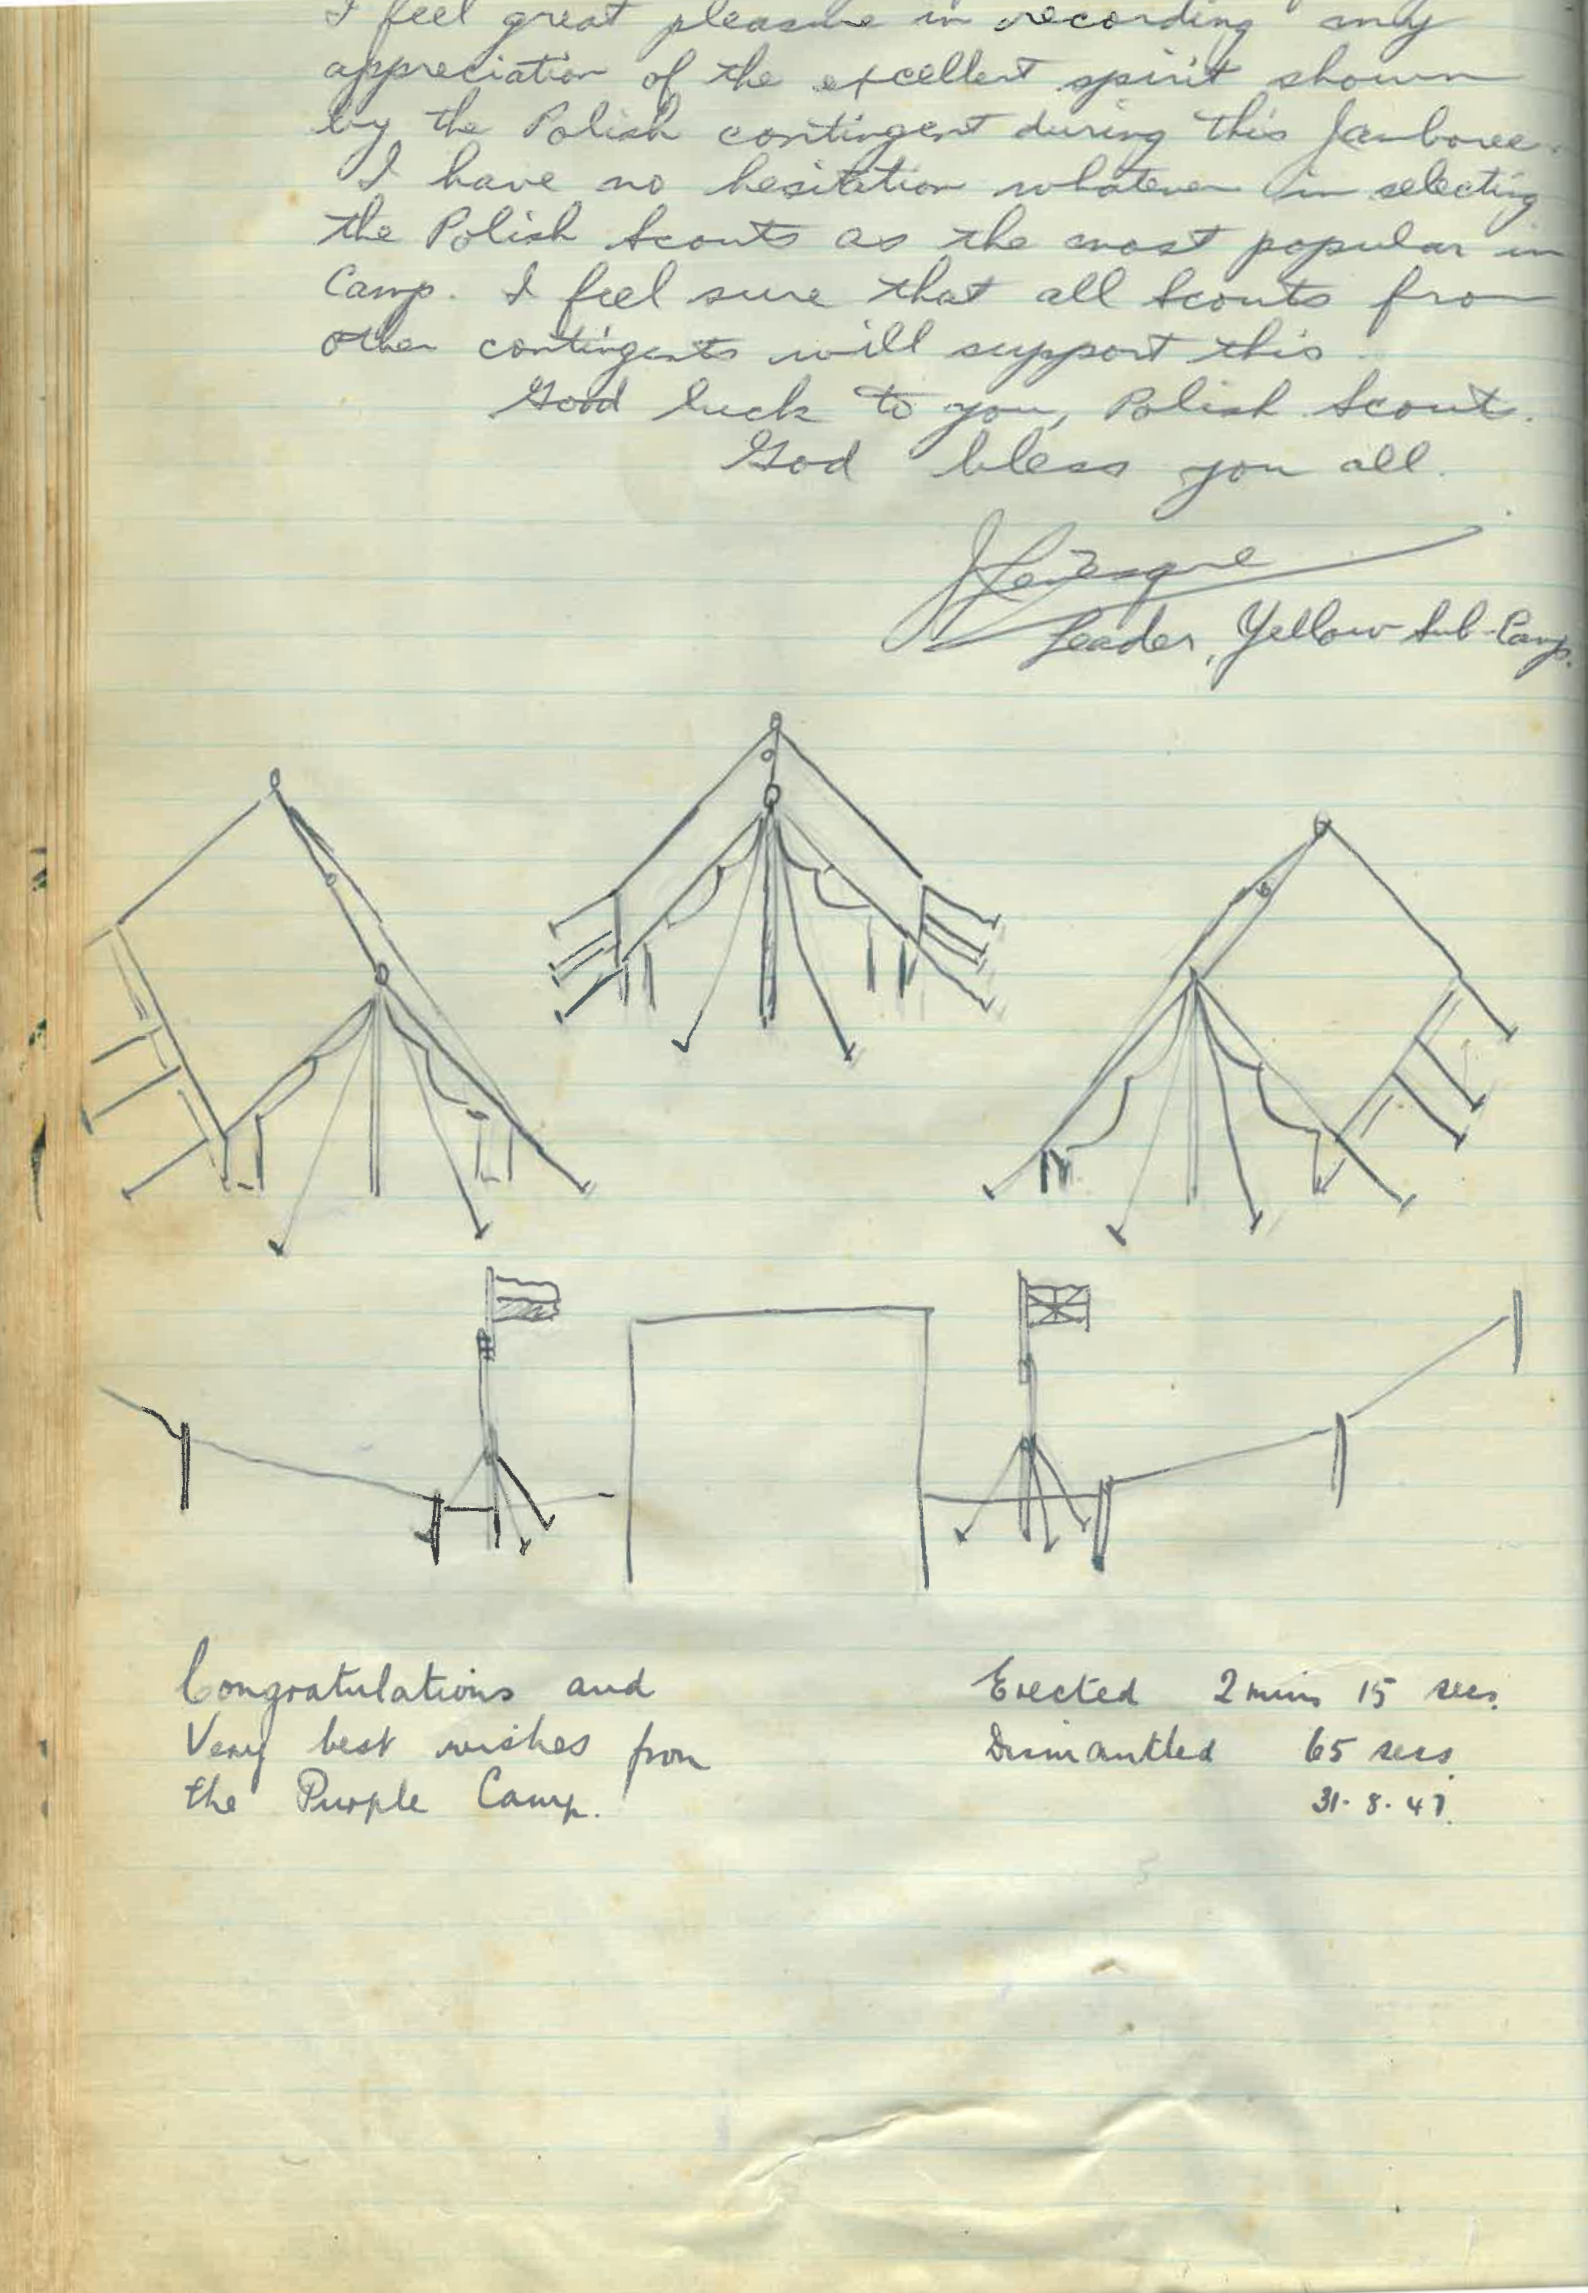 I feel great pleasure in recording my
appreciation of the excellent spirit shown
by the Polish contingent during this Jamboree.
I have no hesitation whatever in selecting
the Polish Scouts as the most popular in
Camp. I feel sure that all Scouts from
other contingents will support this.
Good luck to you, Polish Scouts.
God bless you all.
Leader, Yellow Sub-Camp.
Congratulations and
Very best wishes from
the Purple Camp.
Erected 2 mins 15 secs.
Dismantled 65 secs.
31. 8. 47.